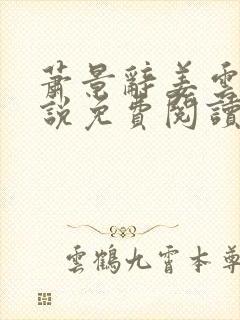 蕭景辭姜雲
說免費閱讀
雲鶴九霄本尊